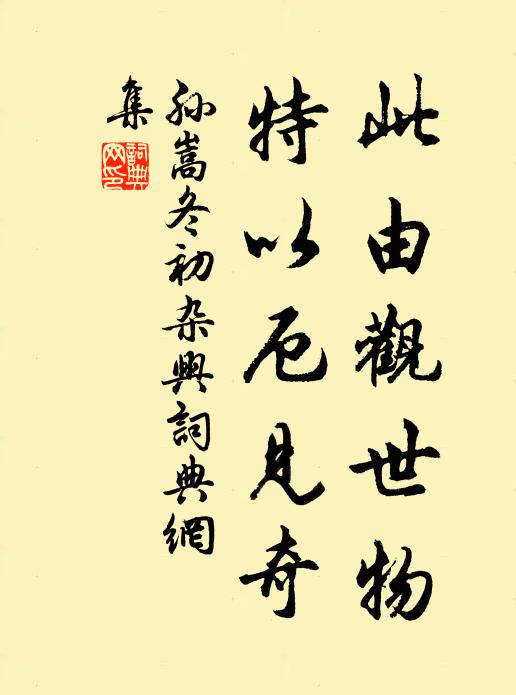 此由觀世物
特以厄見奇
孙嵩冬初杂興詞典網
集
詞典網印